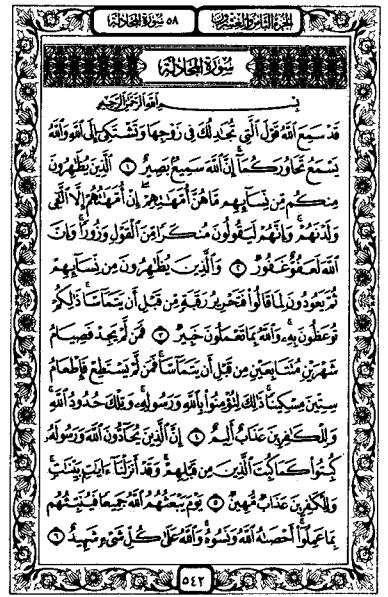 الجزء الثامن والعشرون ٥٨ سورة المجادلة
سُورَةُ المُجَادَلَة
بِسْمِ ٱللَّهِ ٱلرَّحْمَٰنِ ٱلرَّحِيمِ
قَدْ سَمِعَ ٱللَّهُ قَوْلَ ٱلَّتِى تُجَٰدِلُكَ فِى زَوْجِهَا وَتَشْتَكِىٓ إِلَى ٱللَّهِ وَٱللَّهُ
يَسْمَعُ تَحَاوُرَكُمَآ ۚ إِنَّ ٱللَّهَ سَمِيعٌۢ بَصِيرٌ ١ ٱلَّذِينَ يُظَٰهِرُونَ
مِنكُم مِّن نِّسَآئِهِم مَّا هُنَّ أُمَّهَٰتِهِمْ ۖ إِنْ أُمَّهَٰتُهُمْ إِلَّا ٱلَّٰٓـِٔى
وَلَدْنَهُمْ ۚ وَإِنَّهُمْ لَيَقُولُونَ مُنكَرًا مِّنَ ٱلْقَوْلِ وَزُورًا ۚ وَإِنَّ
ٱللَّهَ لَعَفُوٌّ غَفُورٌ ٢ وَٱلَّذِينَ يُظَٰهِرُونَ مِن نِّسَآئِهِمْ
ثُمَّ يَعُودُونَ لِمَا قَالُوا۟ فَتَحْرِيرُ رَقَبَةٍ مِّن قَبْلِ أَن يَتَمَآسَّا ۚ ذَٰلِكُمْ
تُوعَظُونَ بِهِۦ ۚ وَٱللَّهُ بِمَا تَعْمَلُونَ خَبِيرٌ ٣ فَمَن لَّمْ يَجِدْ فَصِيَامُ
شَهْرَيْنِ مُتَتَابِعَيْنِ مِن قَبْلِ أَن يَتَمَآسَّا ۖ فَمَن لَّمْ يَسْتَطِعْ فَإِطْعَامُ
سِتِّينَ مِسْكِينًا ۚ ذَٰلِكَ لِتُؤْمِنُوا۟ بِٱللَّهِ وَرَسُولِهِۦ ۚ وَتِلْكَ حُدُودُ ٱللَّهِ ۗ
وَلِلْكَٰفِرِينَ عَذَابٌ أَلِيمٌ ٤ إِنَّ ٱلَّذِينَ يُحَآدُّونَ ٱللَّهَ وَرَسُولَهُۥ
كُبِتُوا۟ كَمَا كُبِتَ ٱلَّذِينَ مِن قَبْلِهِمْ ۚ وَقَدْ أَنزَلْنَآ ءَايَٰتٍۭ بَيِّنَٰتٍ ۚ
وَلِلْكَٰفِرِينَ عَذَابٌ مُّهِينٌ ٥ يَوْمَ يَبْعَثُهُمُ ٱللَّهُ جَمِيعًا فَيُنَبِّئُهُم
بِمَا عَمِلُوٓا۟ ۚ أَحْصَىٰهُ ٱللَّهُ وَنَسُوهُ ۚ وَٱللَّهُ عَلَىٰ كُلِّ شَىْءٍ شَهِيدٌ ٦
٥٤٢